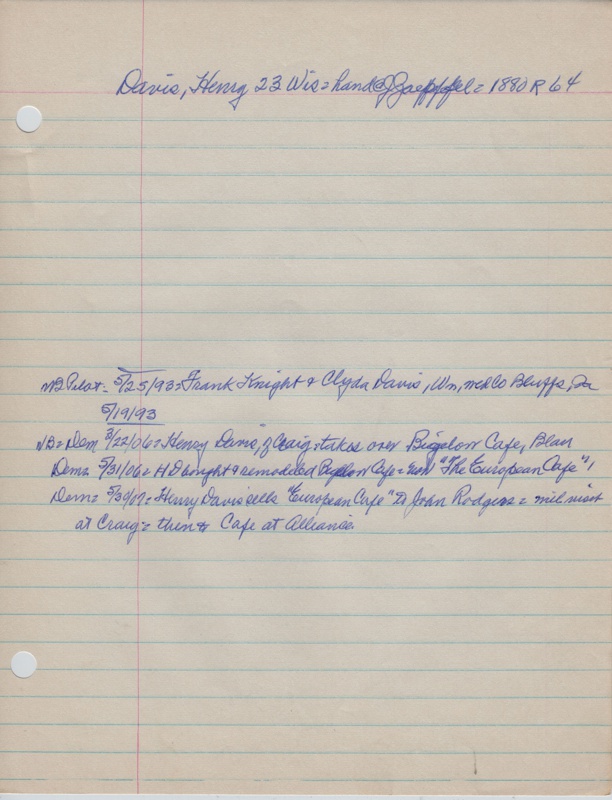 Davis, Henry 23 Wis = hand J Zaepffel = 1880 R 64
NB Pilot = 5/25/93 = Frank Knight & Clyda Davis, Wn, med Co Bluffs, Ia
5/19/93
NB = Dem 3/22/06 = Henry Davis of Craig = takes over Bigelow Cafe, Blair
Dem = 5/31/06 = HD bought & remodeled Bigelow Cafe = now "The European Cafe"
Dem = 5/30/07 = Henry Davis sells "European Cafe" to John Rodgers = will visit
at Craig = then to Cafe at Alliance.